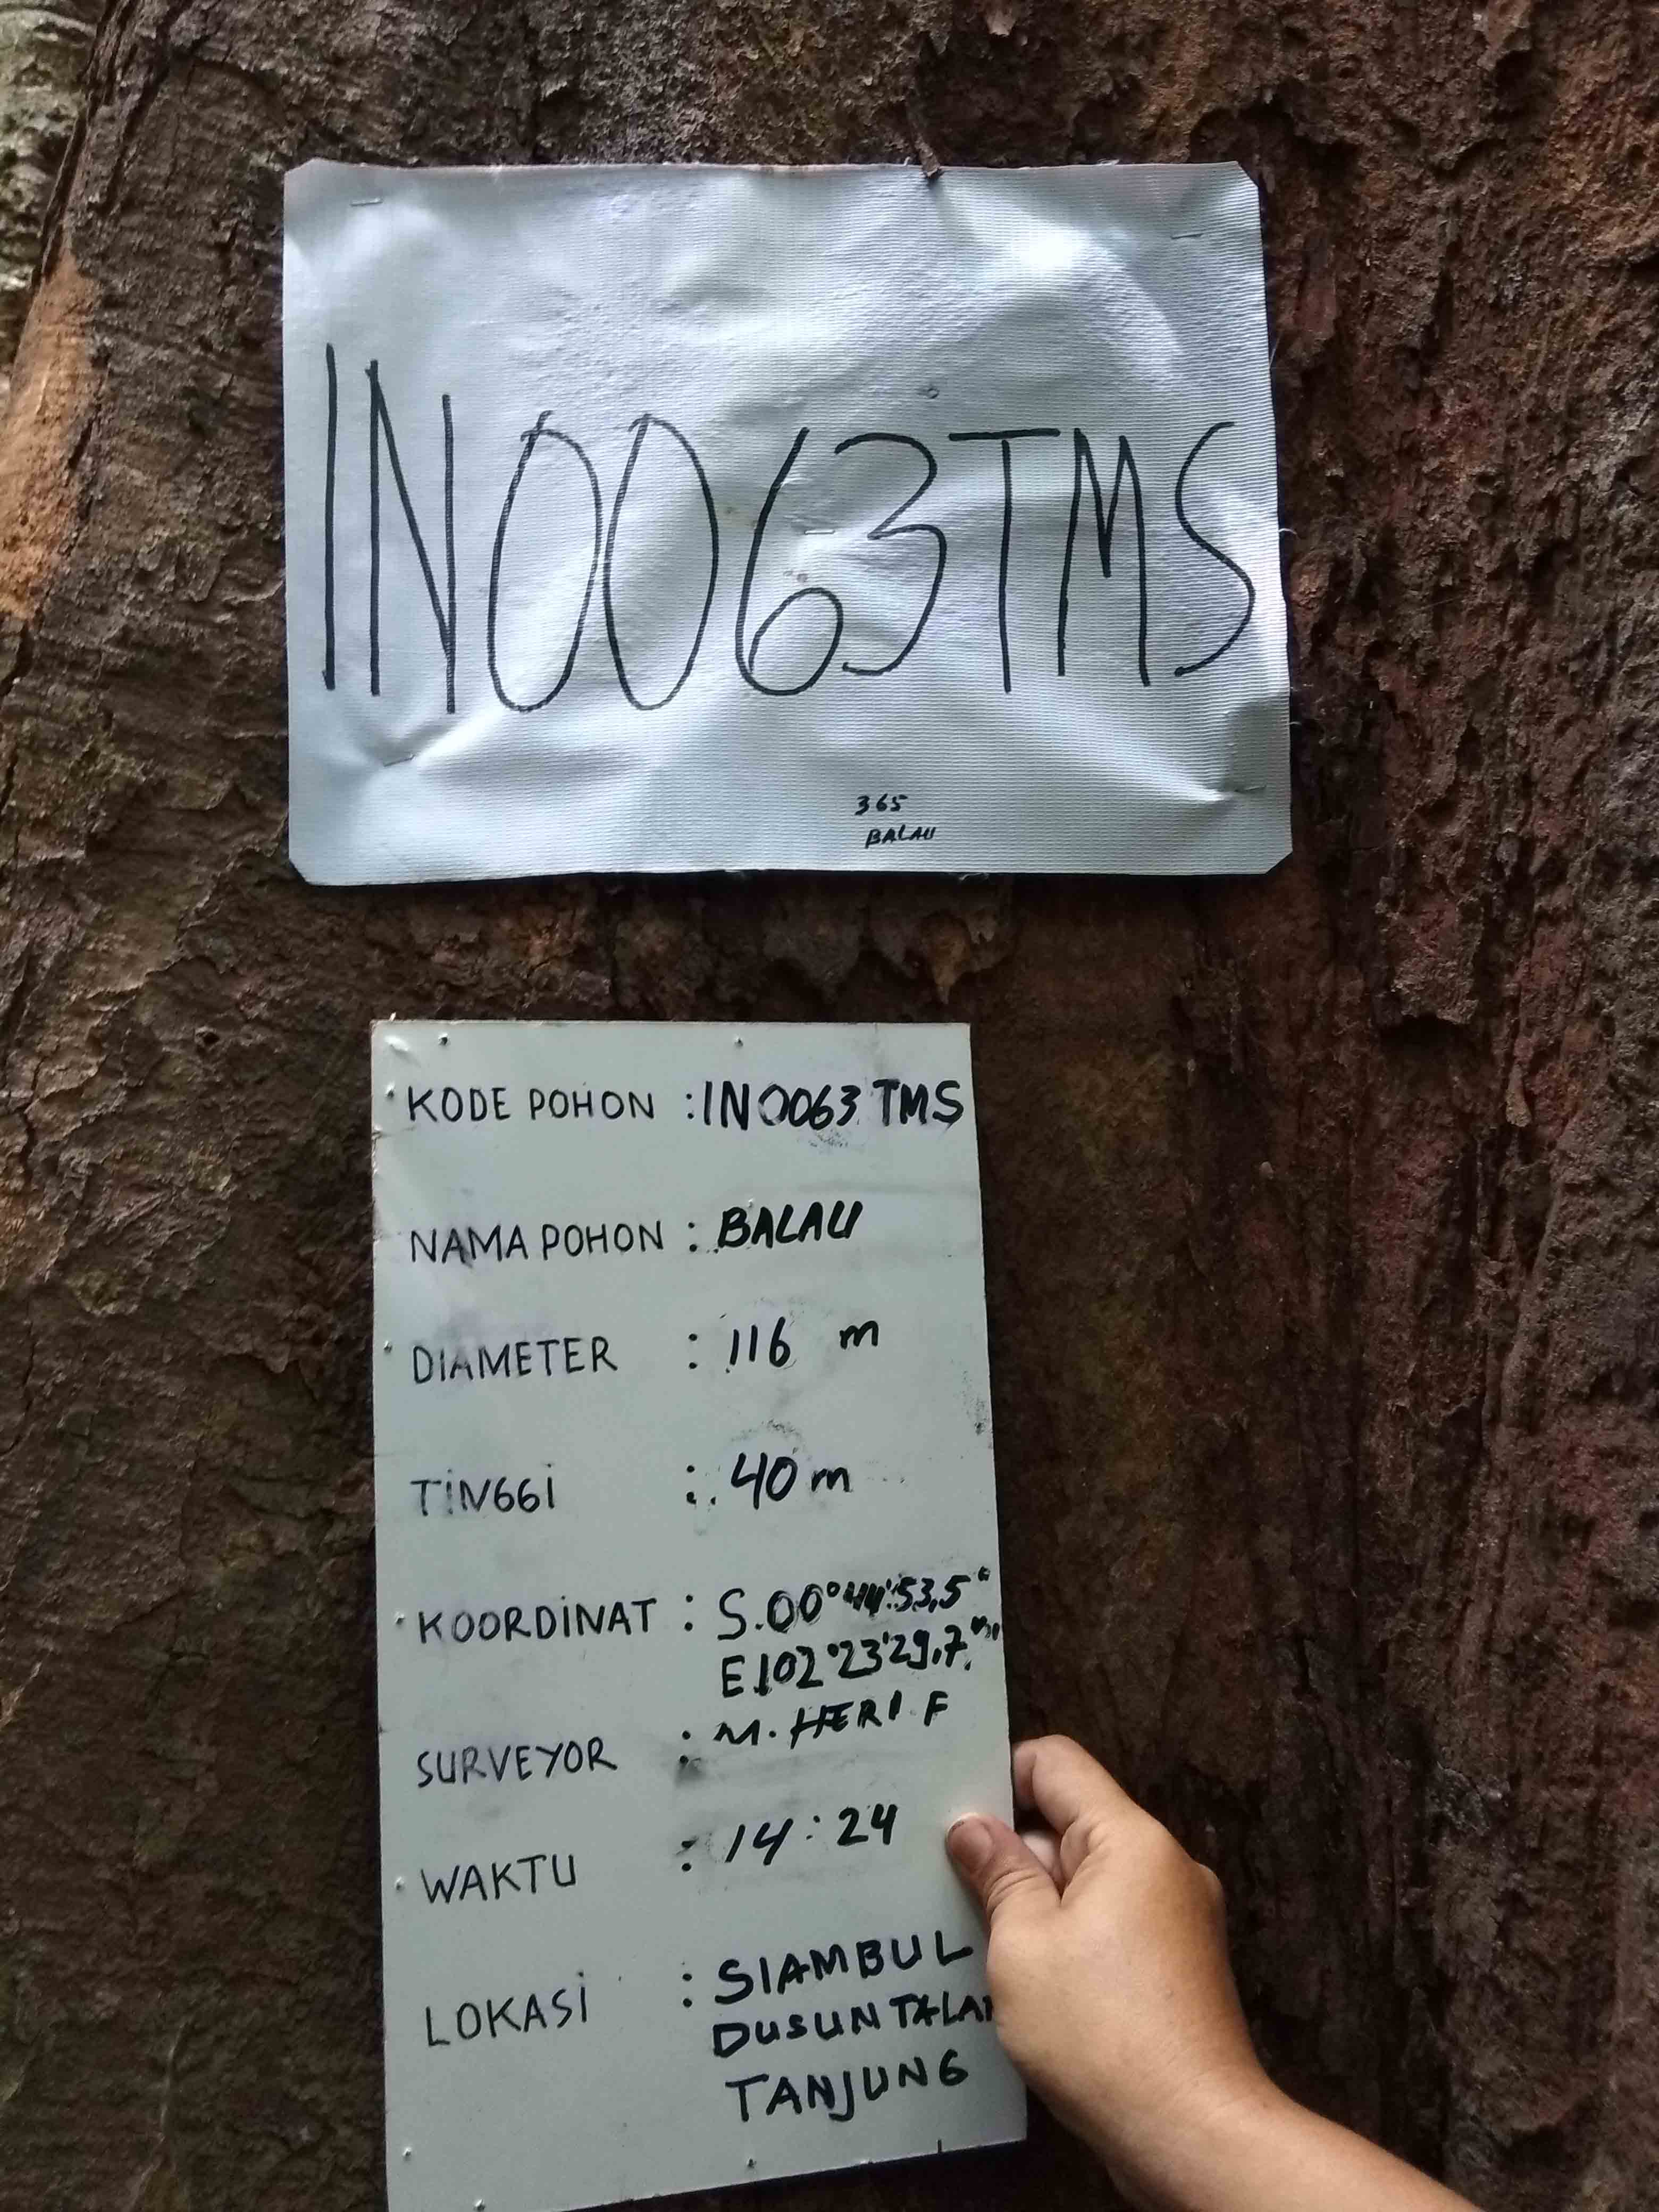 IN0063TMS
365
BALAU
KODE POHON : IN0063 TMS
NAMA POHON : BALAU
DIAMETER : 116 m
TINGGI : 40 m
KOORDINAT : S.00°44'53,5"
E102°23'29,7"
SURVEYOR : M. HERI. F
WAKTU : 14:24
LOKASI : SIAMBUL
DUSUN TALAN
TANJUNG